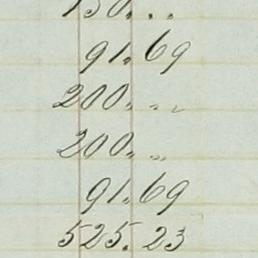 150. „ „
91. 69
200. „ „
200. „ „
91. 69
525. 23